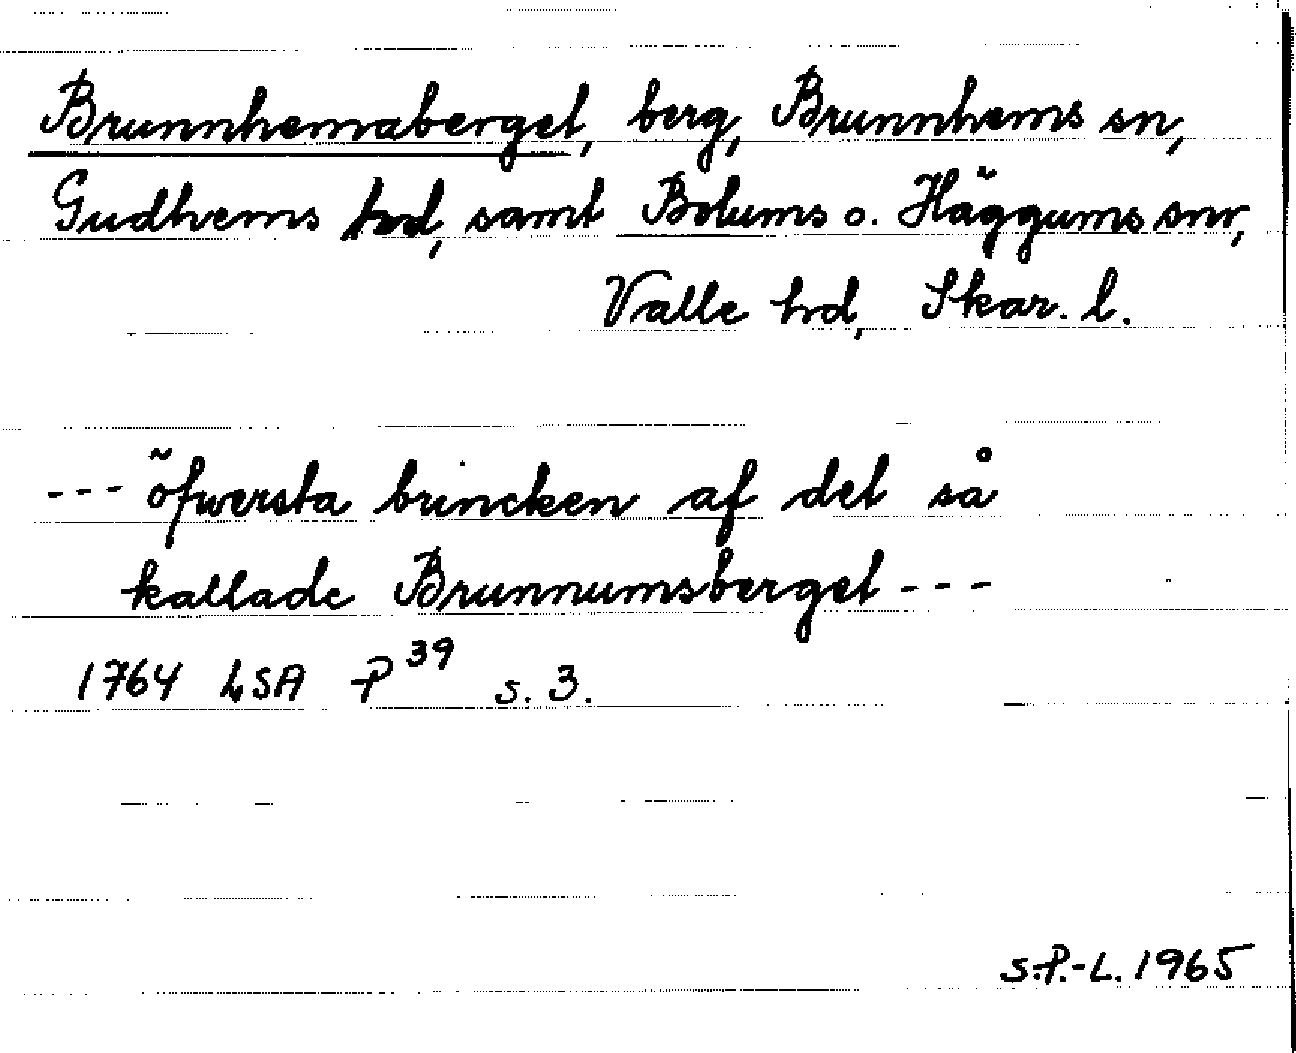 Brunnhemaberget, berg, Brunnhems sn,
Gudhems hd, samt Bolums o. Häggums snr,
Valle hd, Skar. l.
--- öfwersta brincken af det så
kallade Brunnumsberget ---
1764 LSA P 39 s. 3.
S.P.-L. 1965